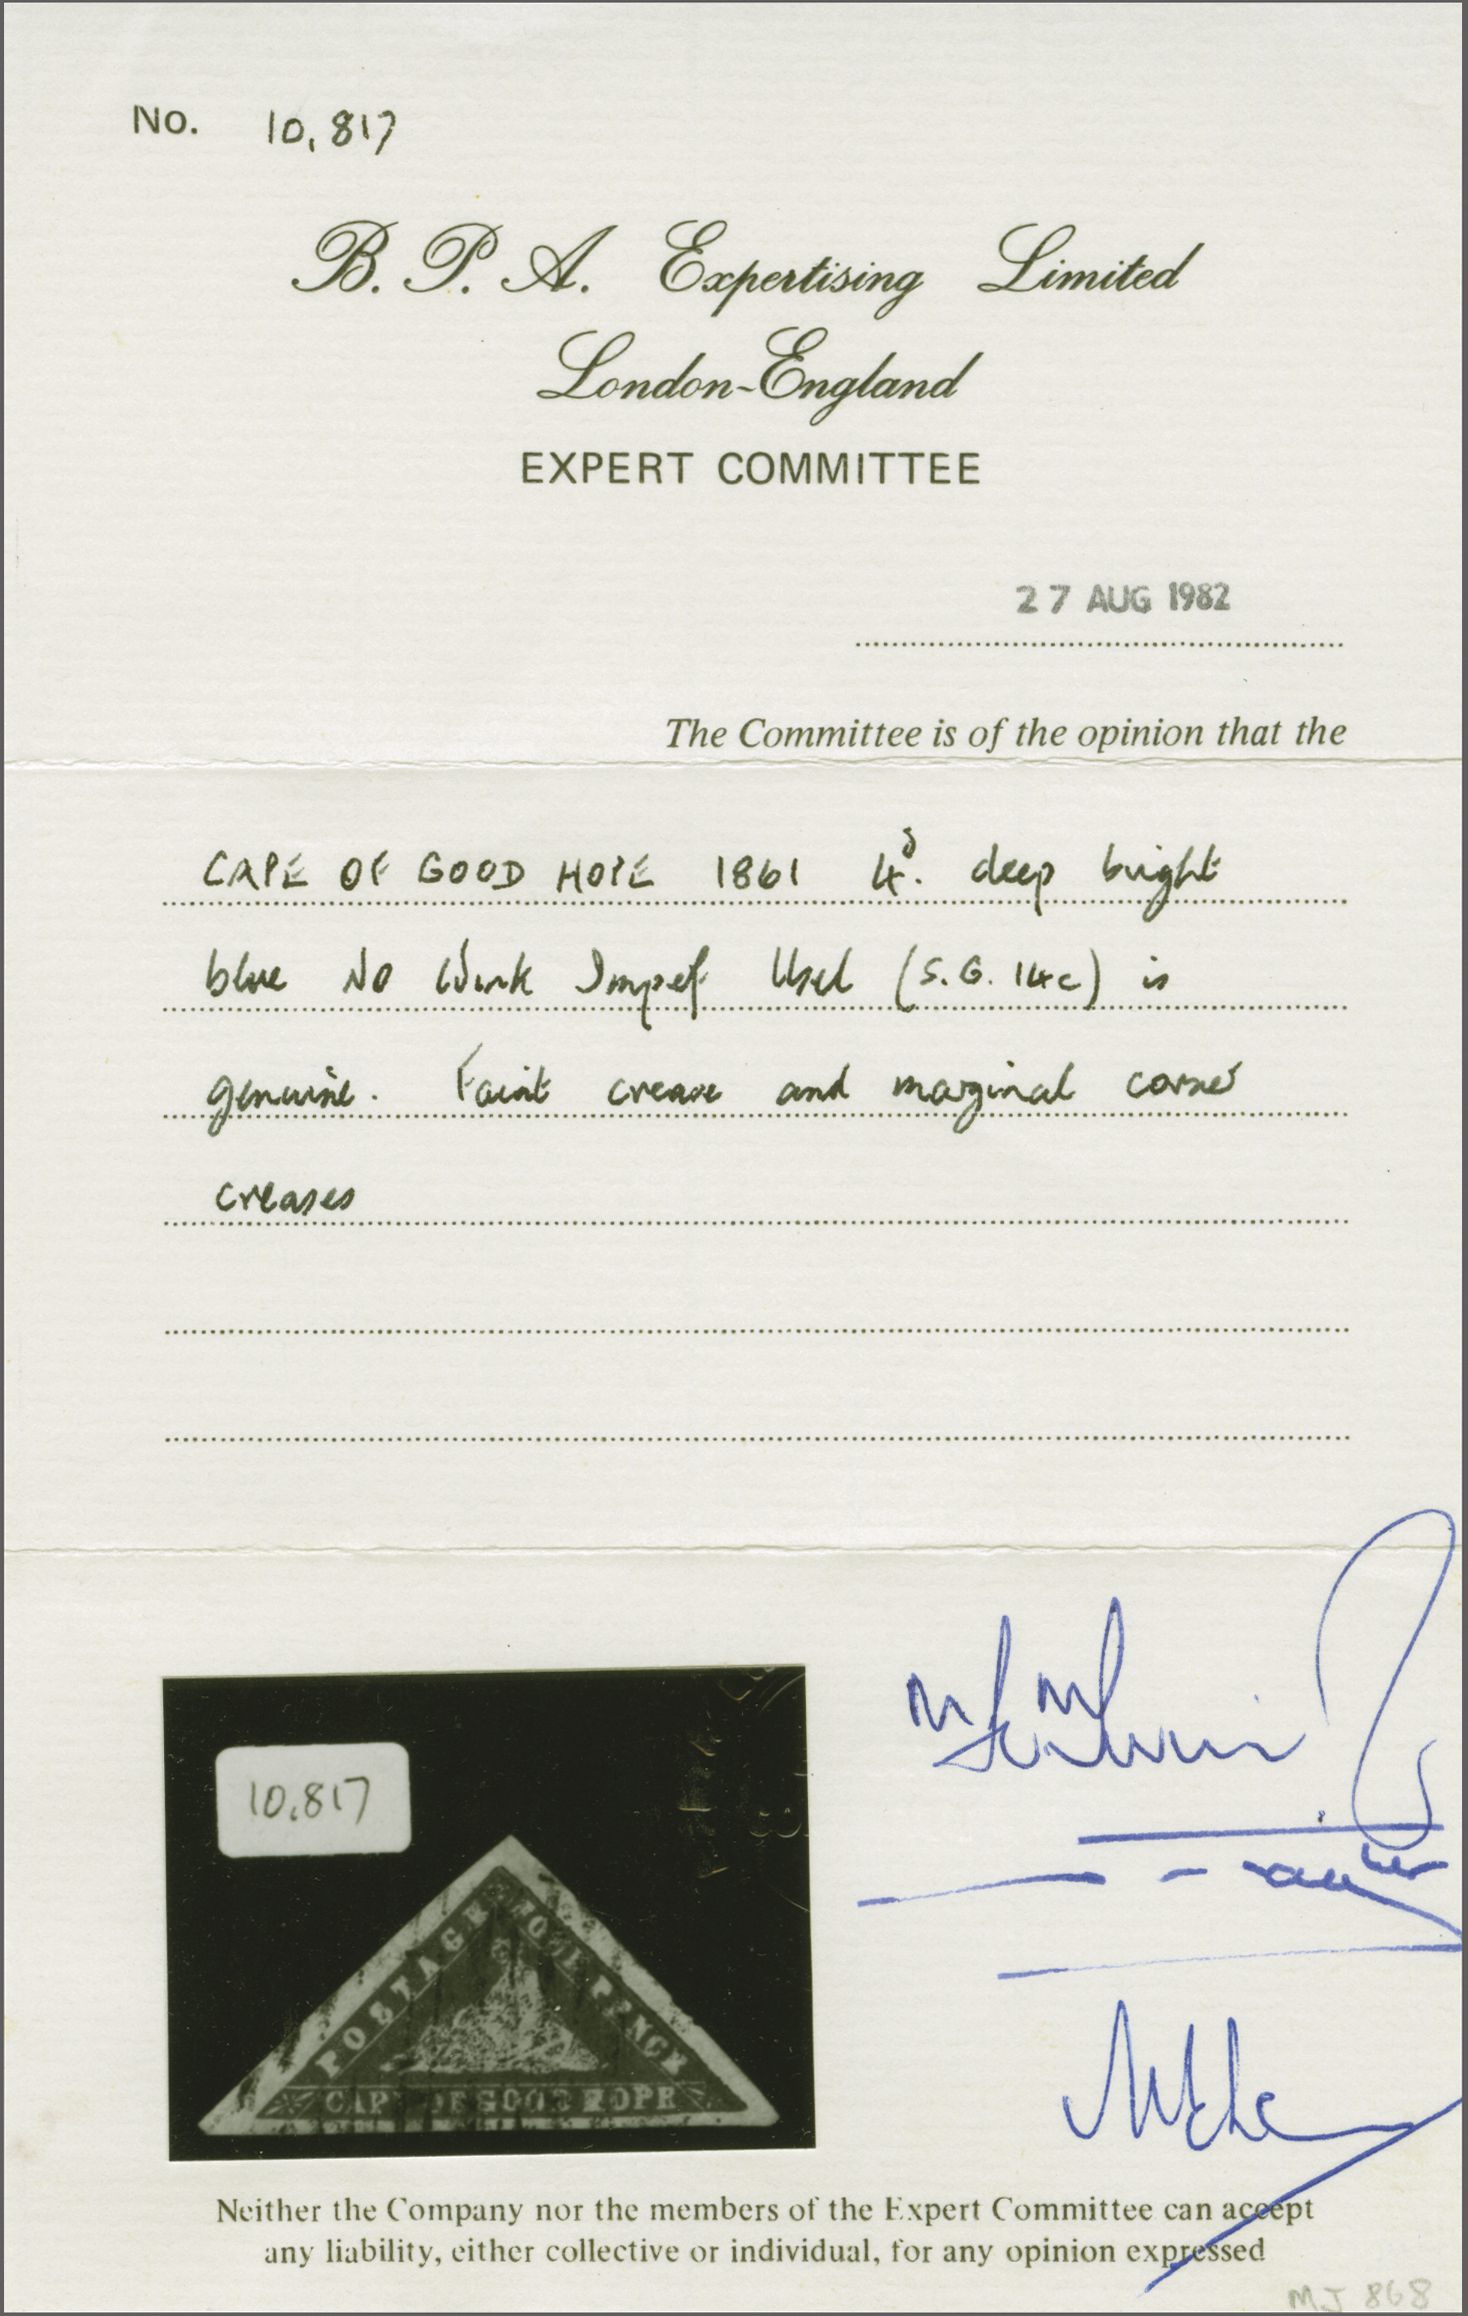 No. 10,817
B. P. A. Expertising Limited
London-England
EXPERT COMMITTEE
27 AUG 1982
The Committee is of the opinion that the
CAPE OF GOOD HOPE 1861 4d. deep bright
blue No Wmk Imperf Used (S.G. 14c) is
genuine. Faint crease and marginal corner
creases
10,817
POSTAGE FOUR PENCE
CAPE OF GOOD HOPE
Neither the Company nor the members of the Expert Committee can accept
any liability, either collective or individual, for any opinion expressed
MJ 868